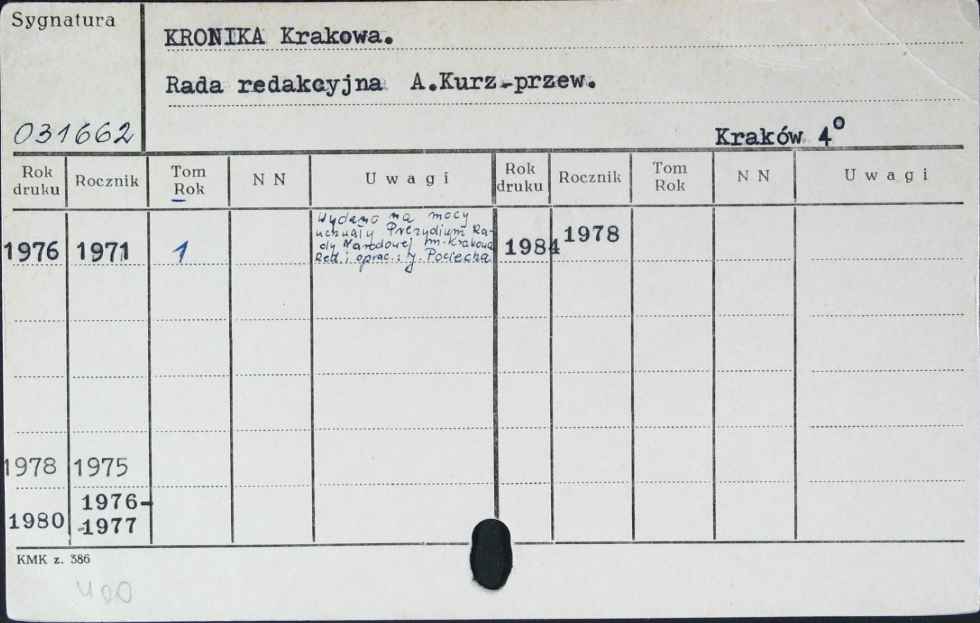 Sygnatura
KRONIKA Krakowa.
Rada redakcyjna A.Kurz-przew.
031662
Kraków 4º
Rok druku Rocznik Tom Rok N N U w a g i Rok druku Rocznik Tom Rok N N U w a g i
1976 1971 1
Wydano na mocy
uchwały Prezydium Ra-
dy Narodowej m. Krakowa
Red. i oprac.: J. Pociecha
1984 1978
1978 1975
1980 1976-
-1977
KMK z. 386
400